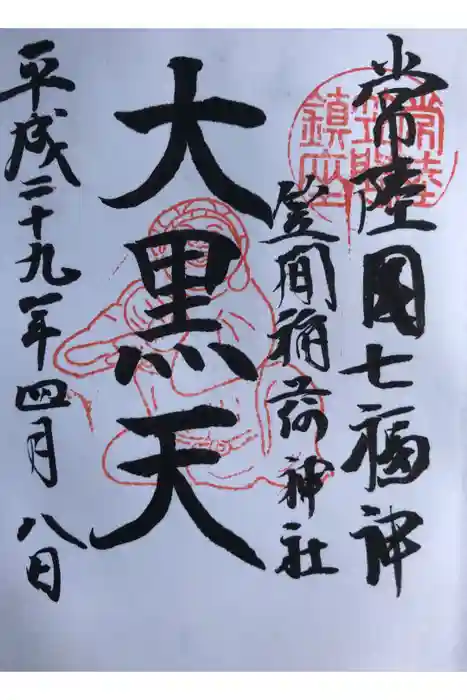 常陸国七福神
常陸
笠間
鎮座
笠間稲荷神社
大黒天
平成二十九年四月八日